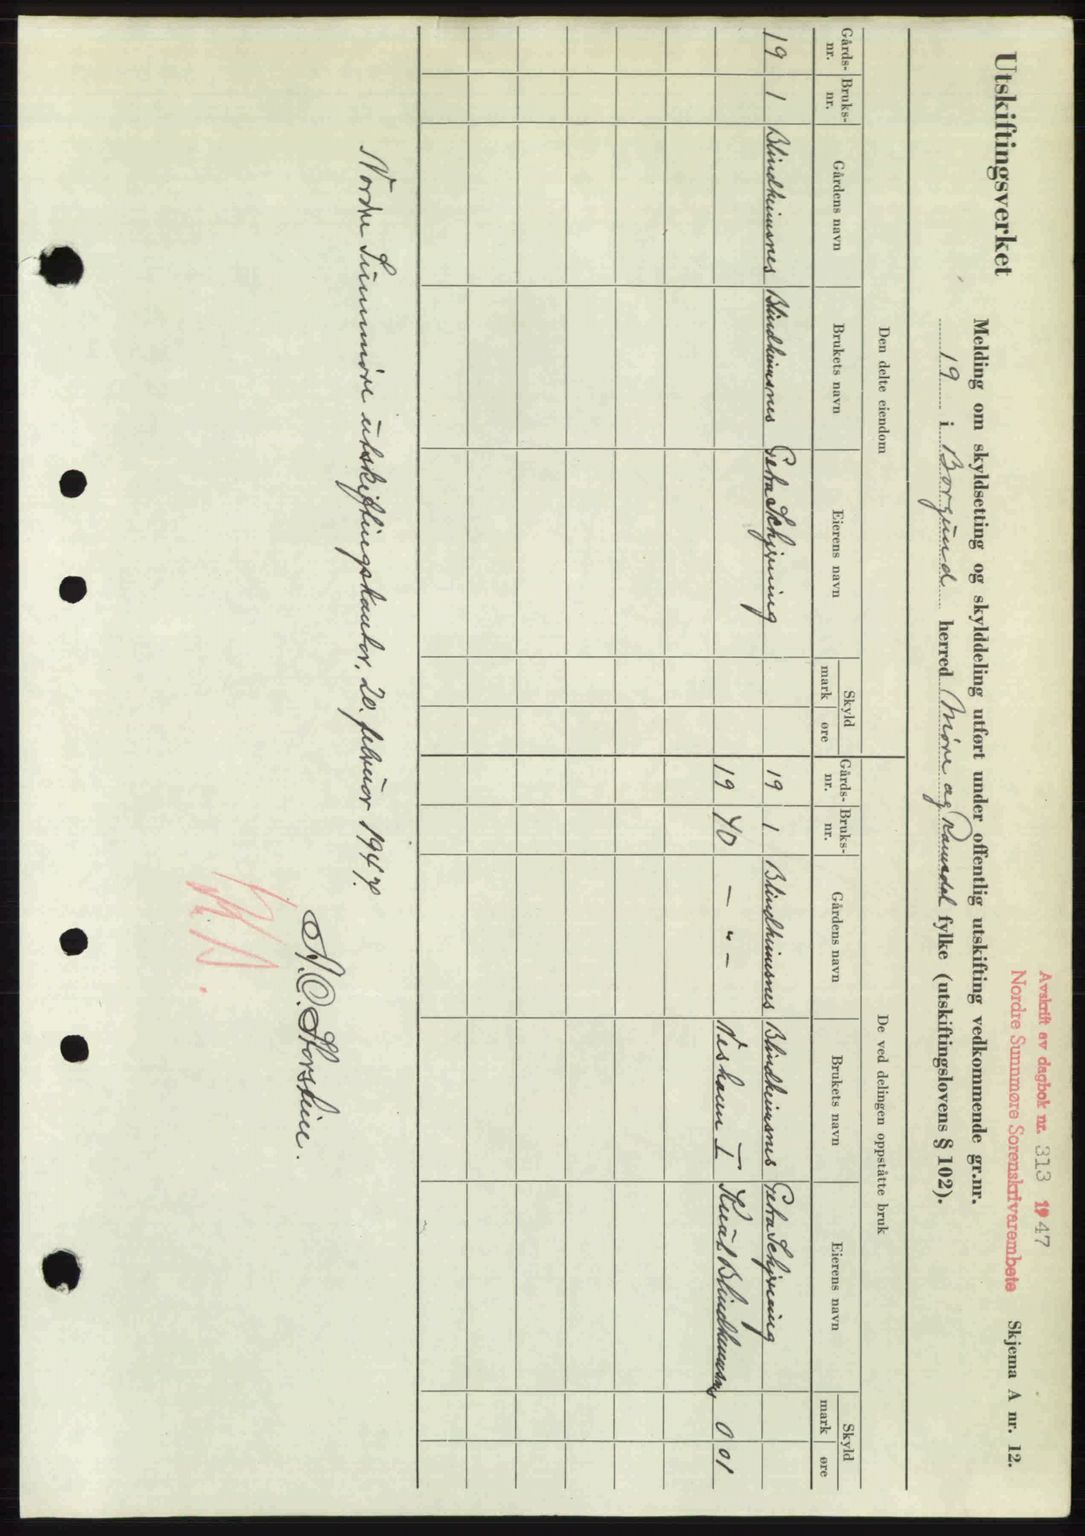 Avskrift av dagbok nr. 313 1947
Nordre Sunnmøre Sorenskrivarembete
Utskiftingsverket
Skjema A nr. 12.
Melding om skyldsetting og skylddeling utført under offentlig utskifting vedkommende gr.nr.
19 i Borgund herred Møre og Romsdal fylke (utskiftingslovens § 102).
Den delte eiendom De ved delingen oppståtte bruk
Gårds-nr. Bruks-nr. Gårdens navn Brukets navn Eierens navn Skyld mark øre Gårds-nr. Bruks-nr. Gårdens navn Brukets navn Eierens navn Skyld mark øre
19 1 Blindheimsnes Blindheimsnes Petra Schjervning 19 1 Blindheimsnes Blindheimsnes Petra Schjervning
19 40 — " — Neshamn I Knut Blindheimsnes 0 01
Nordre Sunnmøre utskiftingskontor, 20. februar 1947.